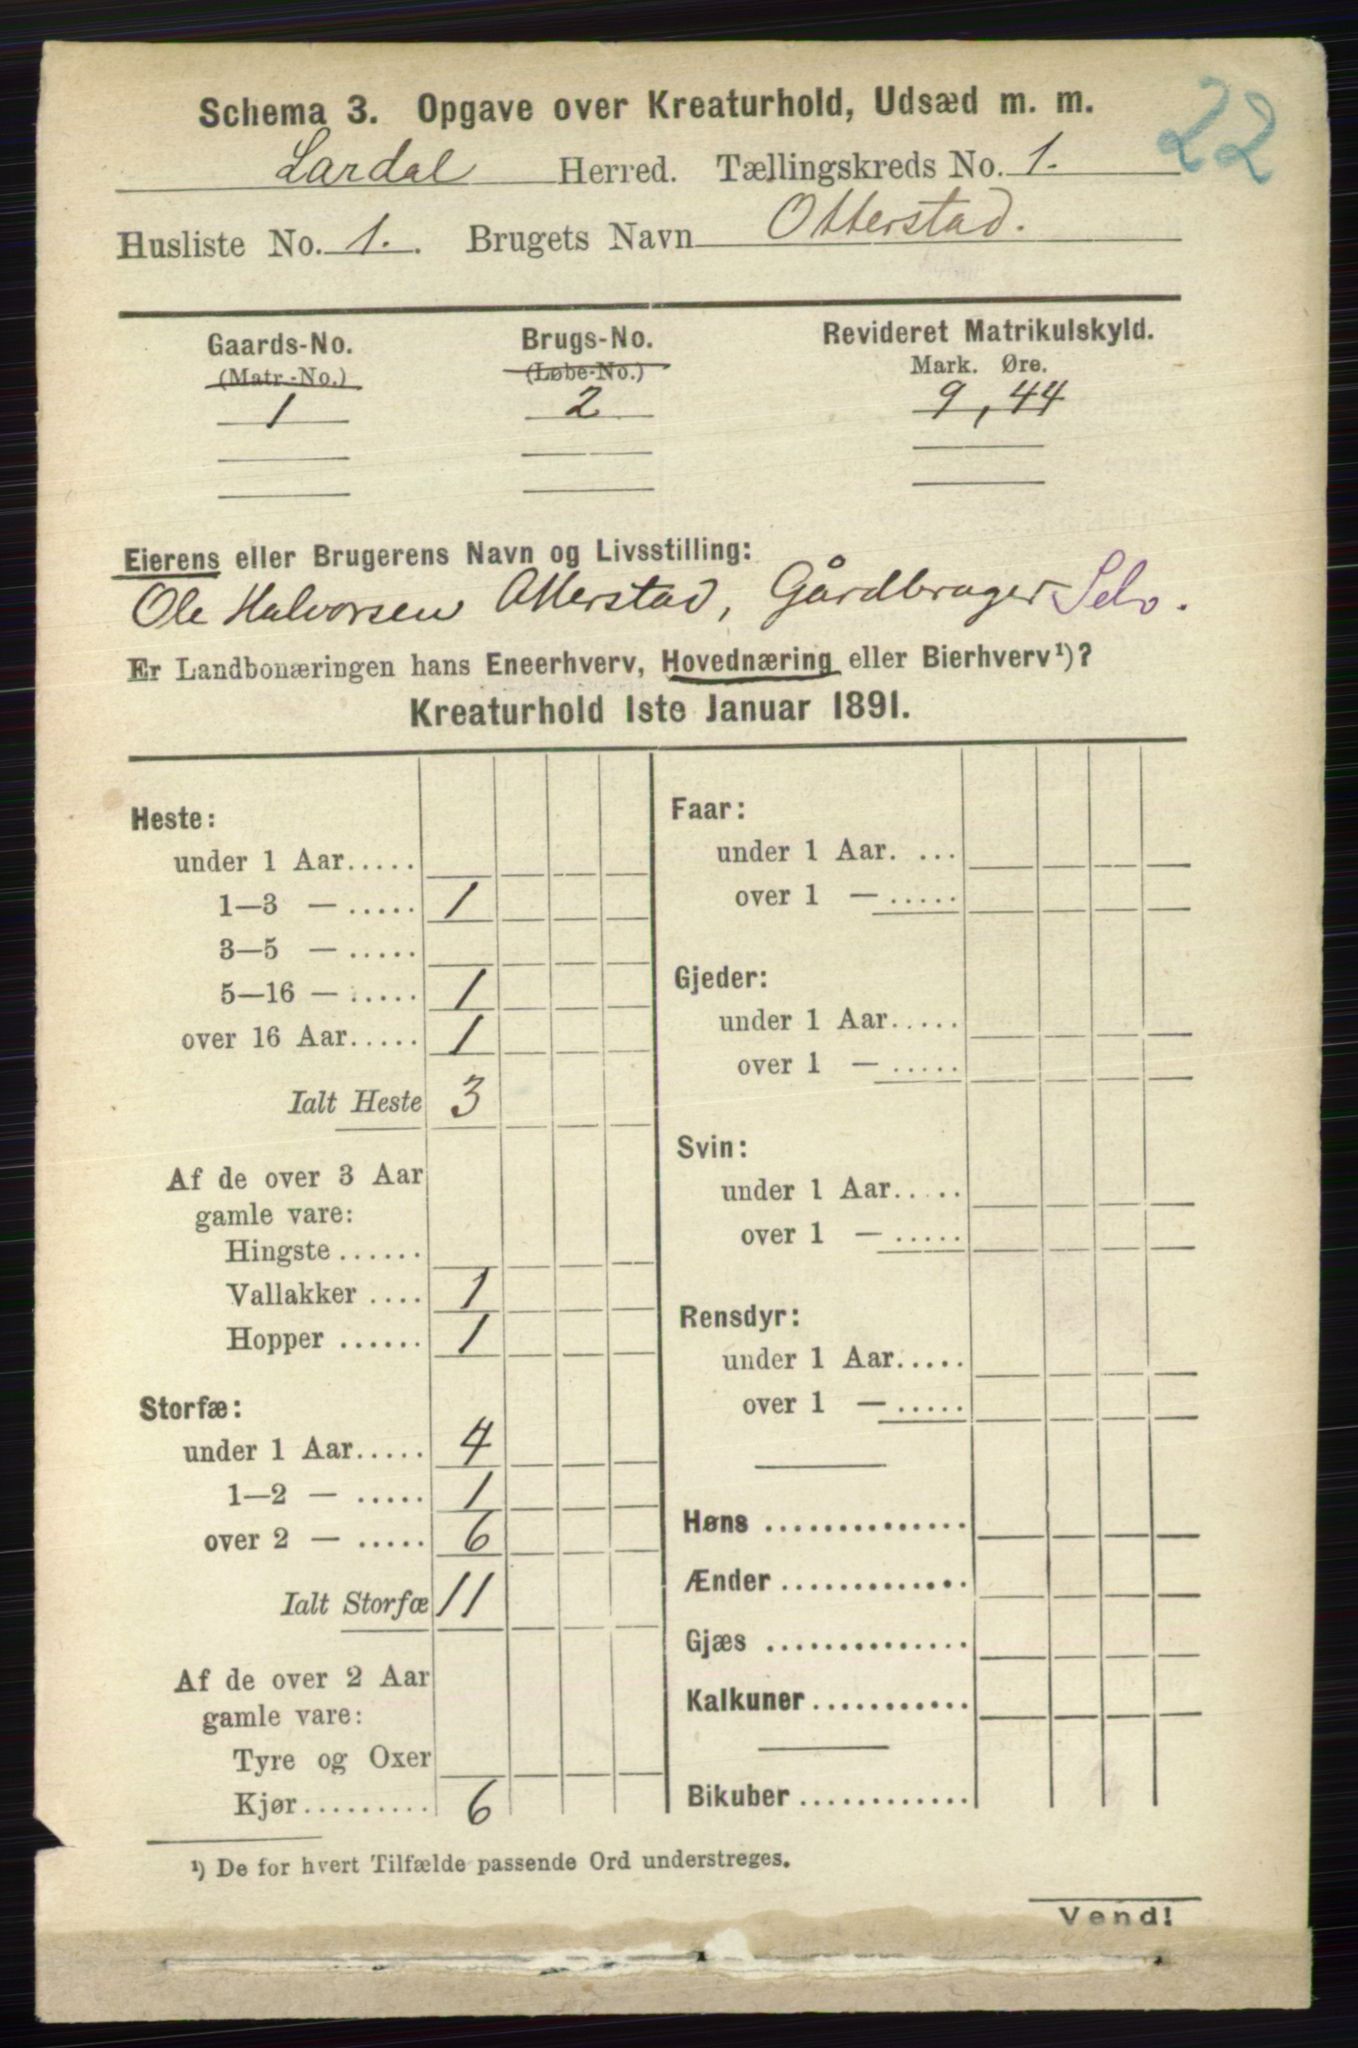 22
Schema 3. Opgave over Kreaturhold, Udsæd m. m.
Lardal Herred. Tællingskreds No. 1.
Husliste No. 1. Brugets Navn Otterstad.
Gaards-No. Brugs-No. Revideret Matrikulskyld.
(Matr.-No.) (Løbe-No.) Mark. Øre.
1 2 9,44
Eierens eller Brugerens Navn og Livsstilling:
Ole Halvorsen Otterstad, Gårdbruger Selv.
Er Landbonæringen hans Eneerhverv, Hovednæring eller Bierhverv¹)?
Kreaturhold 1ste Januar 1891.
Heste:
under 1 Aar.....
1—3 — ..... 1
3—5 — .....
5—16 — ..... 1
over 16 Aar..... 1
Ialt Heste 3
Af de over 3 Aar
gamle vare:
Hingste ......
Vallakker .... 1
Hopper ...... 1
Storfæ:
under 1 Aar..... 4
1—2 — ..... 1
over 2 — ..... 6
Ialt Storfæ 11
Af de over 2 Aar
gamle vare:
Tyre og Oxer
Kjør......... 6
Faar:
under 1 Aar. ...
over 1 — .....
Gjeder:
under 1 Aar.....
over 1 — .....
Svin:
under 1 Aar.....
over 1 — .....
Rensdyr:
under 1 Aar.....
over 1 — .....
Høns ..............
Ænder .............
Gjæs ..............
Kalkuner ...........
Bikuber ............
¹) De for hvert Tilfælde passende Ord understreges.
Vend!